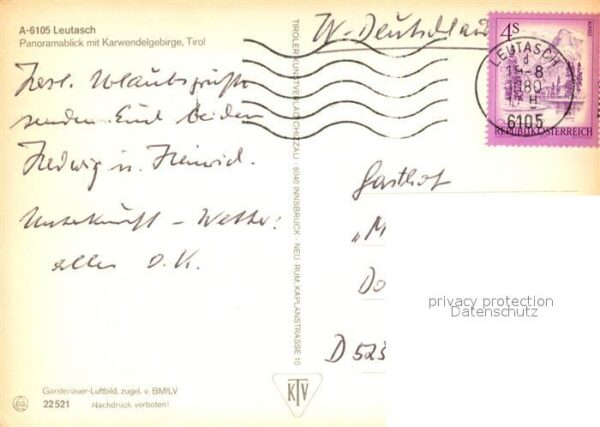 A-6105 Leutasch
Panoramablick mit Karwendelgebirge, Tirol
W-Deutschland
4S
REPUBLIK ÖSTERREICH
LEUTASCH
d
19-8
1980
17 H
6105
Herzl. Urlaubsgrüße
senden Euch beiden
Hedwig u. Heinrich.
Unterkunft – Wetter:
alles O.K.
TIROLER KUNSTVERLAG CHIZZALI · 6040 INNSBRUCK - NEU-RUM, KAPLANSTRASSE 10
Gasthof
"M
Do
D 523
privacy protection
Datenschutz
Gerstenauer-Luftbild, zugel. v. BMILV
22521 Nachdruck verboten!
KTV